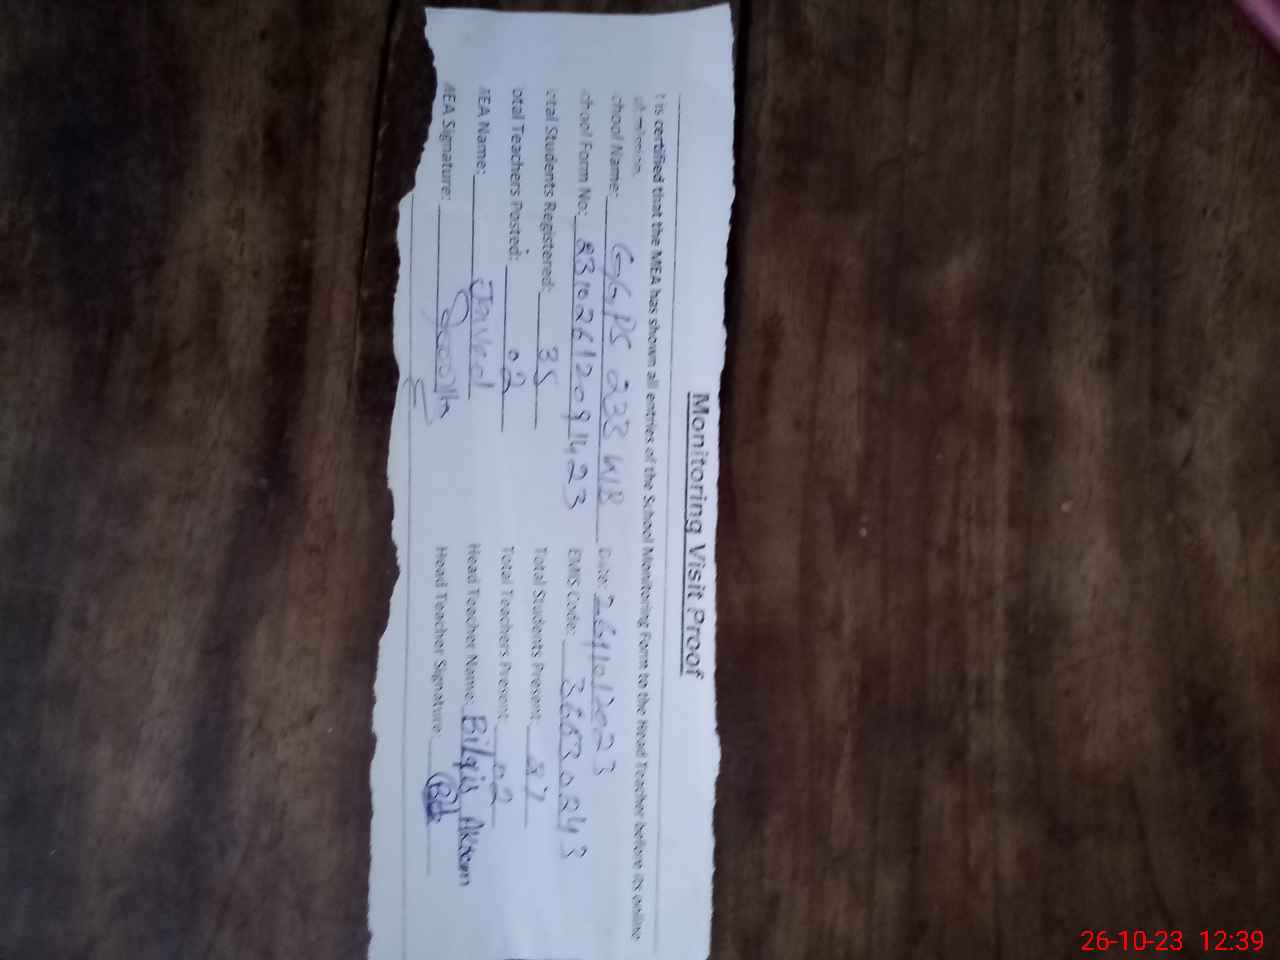 Monitoring Visit Proof
t is certified that the MEA has shown all entries of the School Monitoring Form to the Head Teacher before its online
chool Name: GGPS 233 W/B Date: 26/10/2023
chool Form No: 23102612091423 EMIS Code:
otal Students Registered: 35 Total Students Present: 27
otal Teachers Posted: 02 Total Teachers Present: 02
AEA Name: Javed Head Teacher Name: Bilqis Akram
AEA Signature: Head Teacher Signature:
26-10-23 12:39